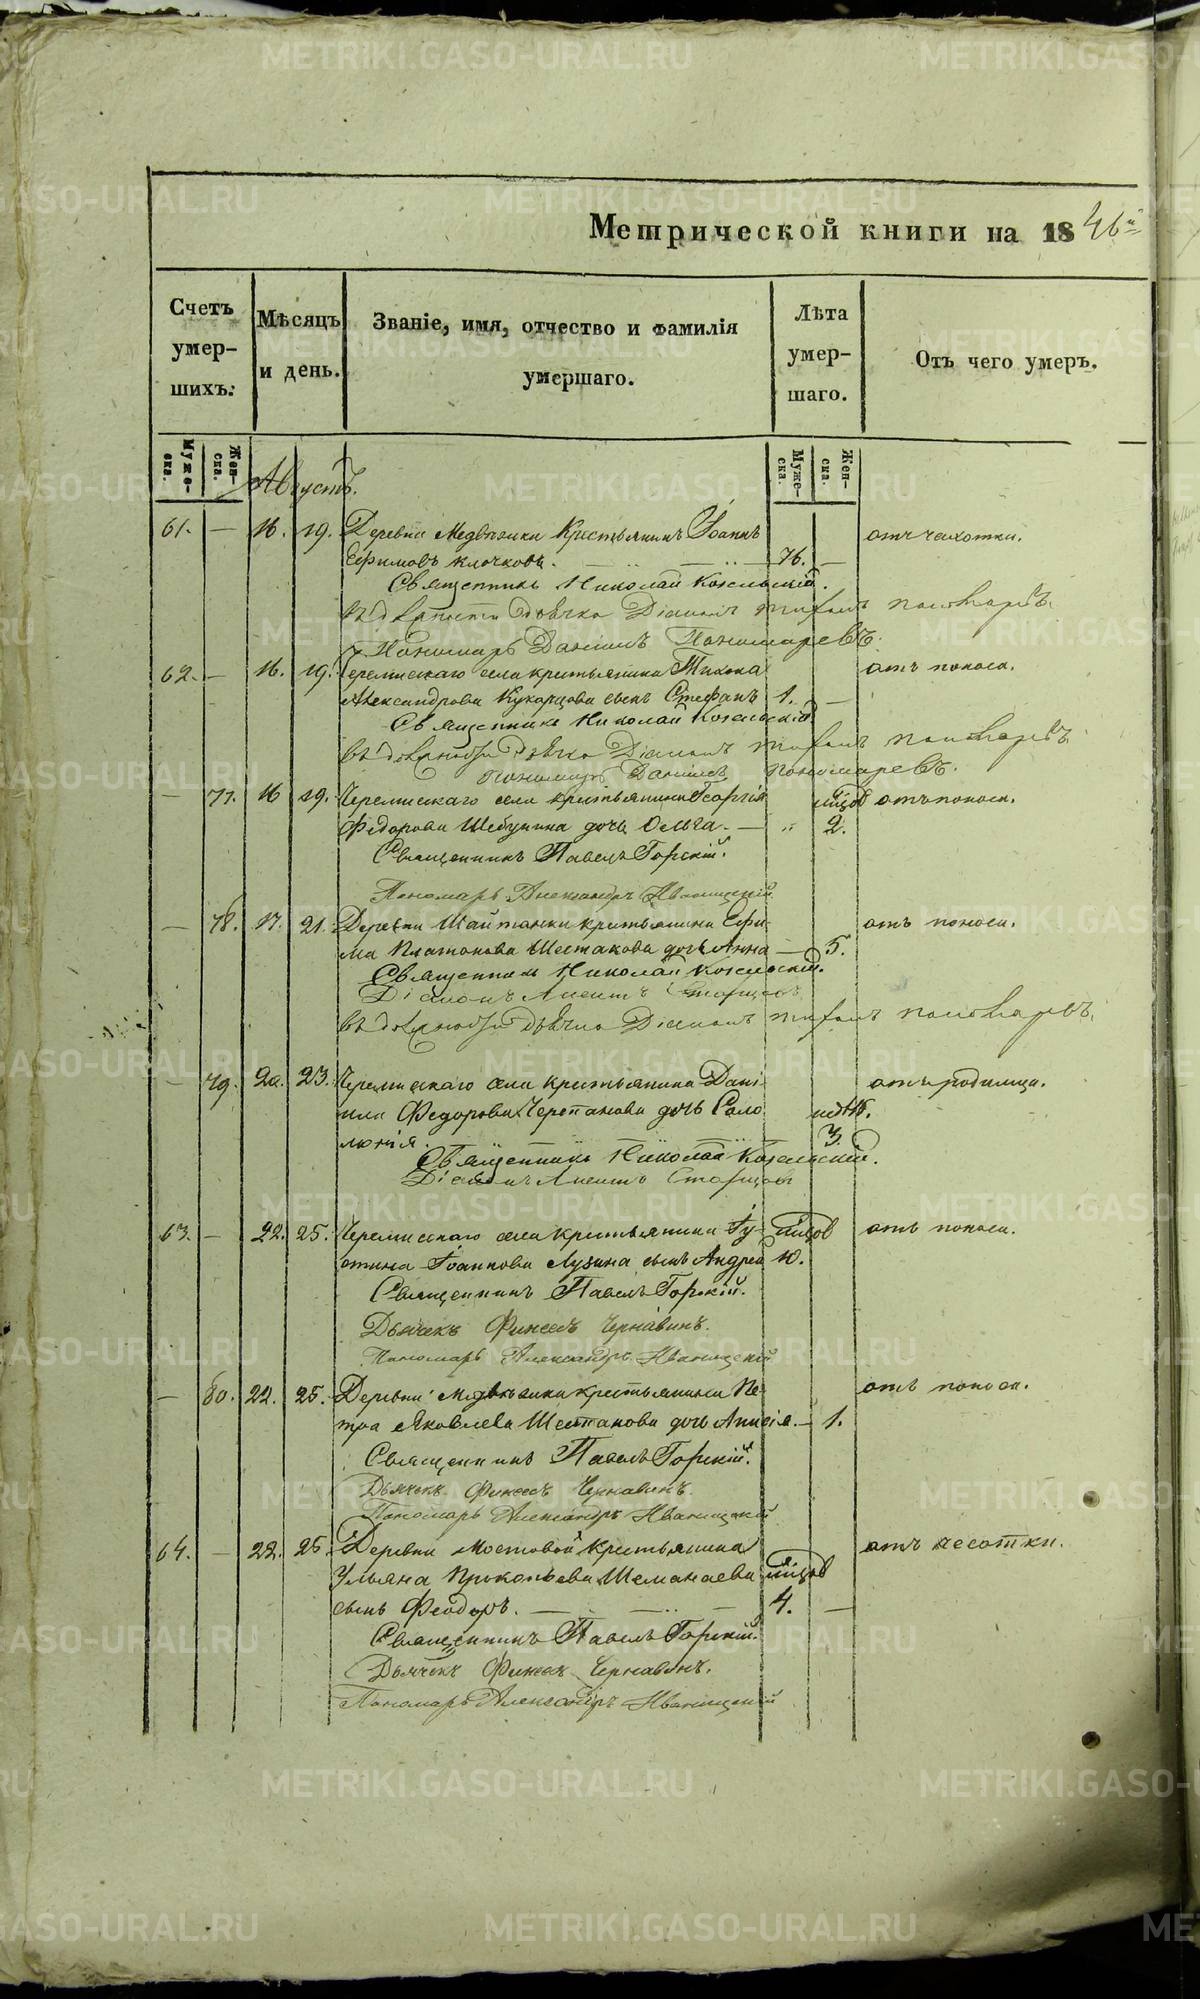 Метрической книги на 1846й
Счетъ умер-шихъ:
Мѣсяцъ и день.
Званіе, имя, отчество и фамилія умершаго.
Лѣта умер-шаго.
Отъ чего умеръ.
Муже-ска. Жен-ска. Муже-ска. Жен-ска.
Августъ.
61. — 16. 19. Деревни Медвѣвки Крестьянинъ Іоаннъ отъ чахотки.
Ефимовъ Клочковъ. 76. —
Священникъ Николай Козельскій.
Діаконъ пономаревъ.
Пономарь Даніилъ Пономаревъ.
62. — 16. 19. Черемисскаго села крестьянина Тихона отъ поноса.
Александрова Кукарцова сынъ Стефанъ 1. —
Священникъ Николай Козельскій
Діаконъ пономаревъ
Пономарь Даніилъ Пономаревъ.
— 77. 16 19. Черемисскаго села крестьянина Георгія мѣсяцов отъ поноса.
Федорова Шебунина дочь Ольга. — " 2.
Священникъ Павелъ Горскій.
Пономарь Александръ Иваницкій
— 78. 17. 21. Деревни Шайтанки крестьянина Ефи- отъ поноса.
ма Платонова Шестакова дочь Анна — 5.
Священникъ Николай Козельскій.
Діаконъ Старцевъ
Діаконъ пономаревъ.
— 79. 20. 23. Черемисскаго села крестьянина Дані- отъ родимца.
ила Федорова Черепанова дочь Соло- нед.
монія. 3.
Священникъ Николай Козельскій.
Діаконъ Старцевъ
63. — 22. 25. Черемисскаго села крестьянина Іу- мѣсяцов отъ поноса.
стина Іоаннова Лузина сынъ Андрей 10.
Священникъ Павелъ Горскій.
Дьячекъ Финеесъ Чернавинъ.
Пономарь Александръ Иваницкій
— 80. 22. 25. Деревни Медвѣвки крестьянина Пе- отъ поноса.
тра Яковлева Шестакова дочь Анисія. — 1.
Священникъ Павелъ Горскій.
Дьячекъ Финеесъ Чернавинъ.
Пономарь Александръ Иваницкій
64. — 22. 25 Деревни Мостовой крестьянина отъ чесотки.
Ульяна Прокопьева Шеманаева мѣсяцов
сынъ Феодоръ. — 4. —
Священникъ Павелъ Горскій.
Дьячекъ Финеесъ Чернавинъ.
Пономарь Александръ Иваницкій
METRIKI.GASO-URAL.RU